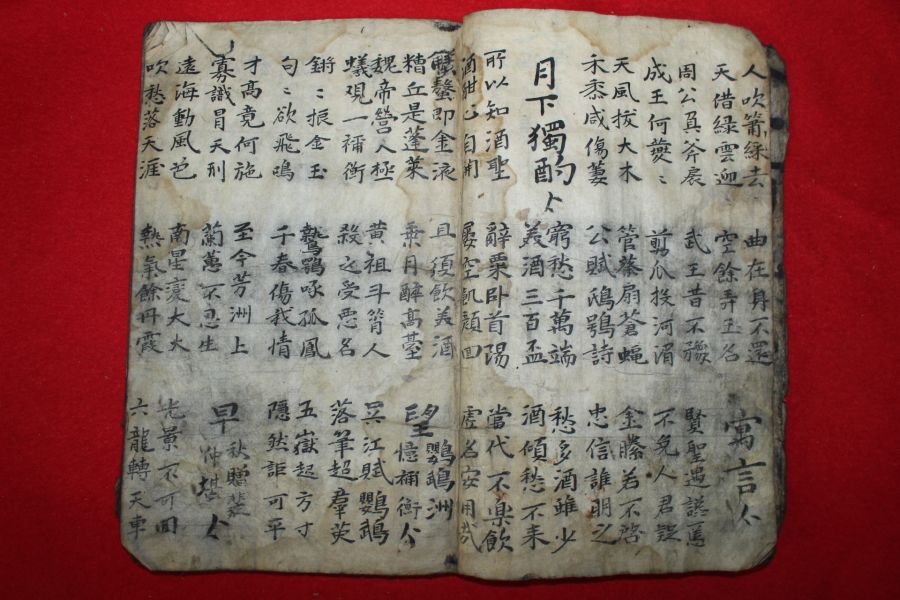 人吹簫綵去
天借綠雲迎
曲在身不還
空餘弄玉名
寓言
周公負斧扆
成王何夔〻
武王昔不豫
剪爪投河湄
賢聖遇讒慝
不免人君疑
天風拔大木
禾黍咸傷萎
管蔡扇蒼蠅
公賦鴟鴞詩
金縢若不啓
忠信誰明之
月下獨酌
窮愁千萬端
美酒三百盃
愁多酒雖少
酒傾愁不来
所以知酒聖
酒酣心自開
辭粟卧首陽
屢空飢顔回
當代不樂飲
虛名安用哉
蟹螯即金液
糟丘是蓬萊
且須飲美酒
乘月醉高臺
望鸚鵡洲憶禰衡
魏帝營人極
蟻覌一禰衡
黄祖斗筲人
殺之受惡名
吳江賦鸚鵡
落筆超羣英
鏘〻振金玉
句〻欲飛鳴
鷙鶚啄孤鳳
千春傷我情
五嶽起方寸
隱然詎可平
才高竟何施
寡識冒天刑
至今芳洲上
蘭蕙不忍生
早秋贈裴仲堪
遠海動風色
吹愁落天涯
南星變大火
熱氣餘丹霞
光景不可回
六龍轉天車